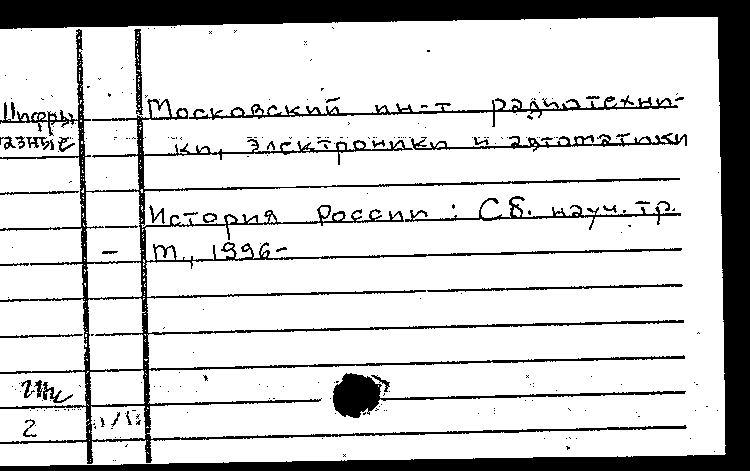 Шифры Московский ин-т радиотехни-
разные ки, электроники и автоматики
История России : Сб. науч. тр.
– М., 1996-
2